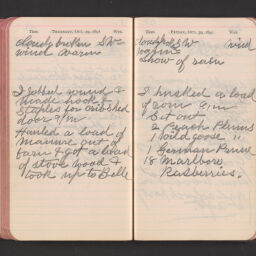 Ther. THURSDAY, OCT. 29, 1891 Wea.
cloudy broken S W
wind warm
I Jobbed round &
made hook &
Staples for crib shed
door A/m
Hauled a load of
Manure out of
barn & got a load
of stove wood &
took up to Belle
Ther. FRIDAY, OCT. 30, 1891 Wea.
S W wind
warm
Show of rain
I husked a load
of corn A/m
Set out
2 Peach Plums
1 Wild goose "
1 German Prune
18 Marlboro
Rasberries.